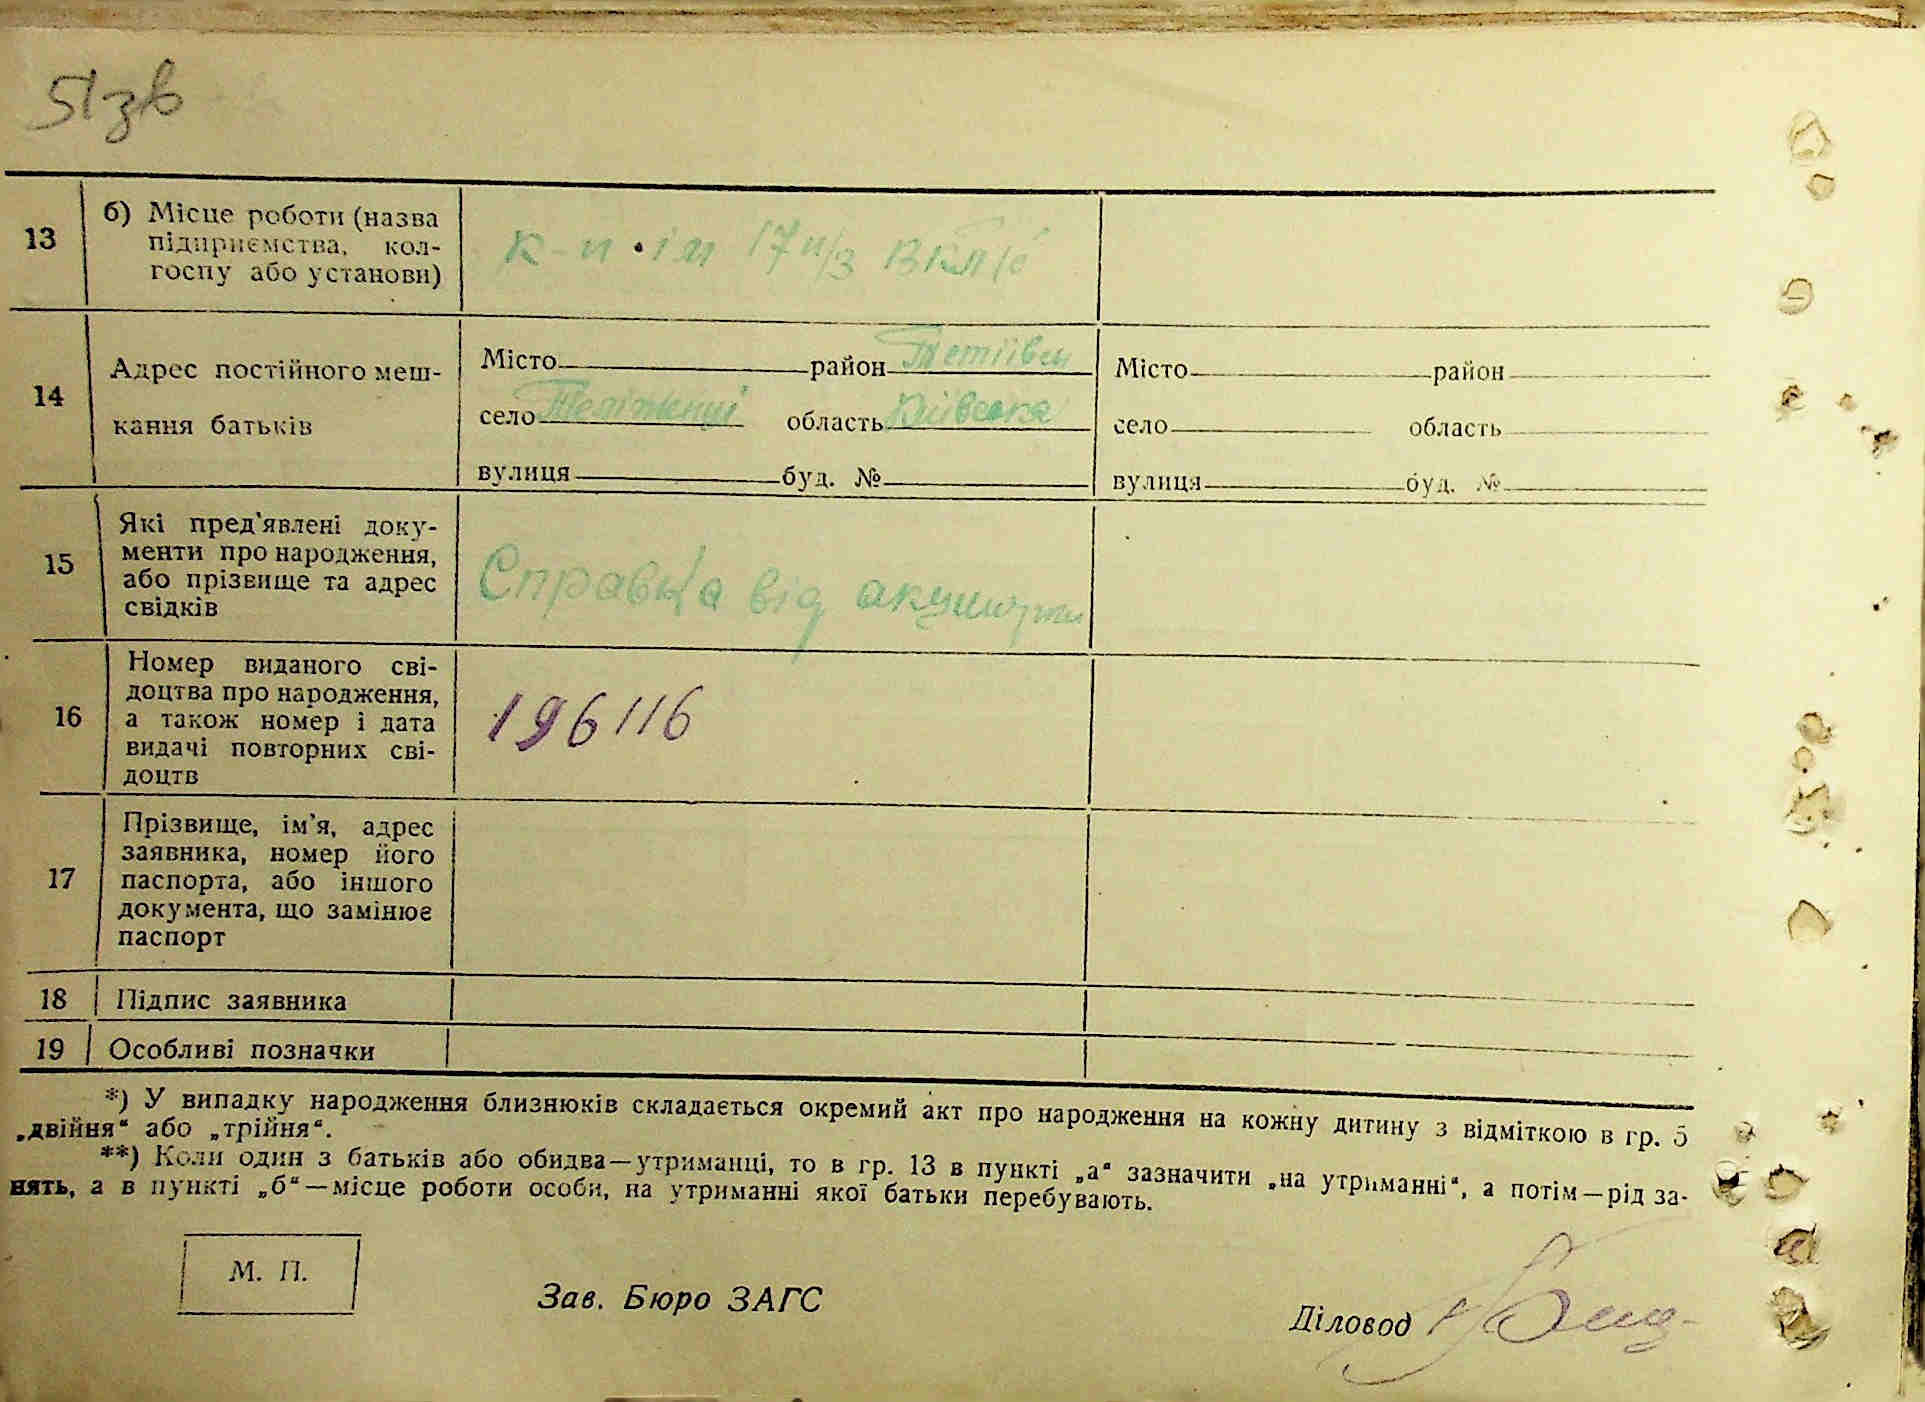 51зв
13
б) Місце роботи (назва
підприємства, кол-
госпу або установи)
к-п ім 17 п/з
14
Адрес постійного меш-
кання батьків
Місто район Тетіївськ
село Теліжинці область Київська
вулиця буд. №
Місто район
село область
вулиця буд. №
15
Які пред'явлені доку-
менти про народження,
або прізвище та адрес
свідків
Справка від акушерки
16
Номер виданого сві-
доцтва про народження,
а також номер і дата
видачі повторних сві-
доцтв
196116
17
Прізвище, ім'я, адрес
заявника, номер його
паспорта, або іншого
документа, що замінює
паспорт
18
Підпис заявника
19
Особливі позначки
*) У випадку народження близнюків складається окремий акт про народження на кожну дитину з відміткою в гр. 5
„двійня“ або „трійня“.
**) Коли один з батьків або обидва—утриманці, то в гр. 13 в пункті „а“ зазначити „на утриманні“, а потім—рід за-
нять, а в пункті „б“—місце роботи особи, на утриманні якої батьки перебувають.
М. П.
Зав. Бюро ЗАГС
Діловод